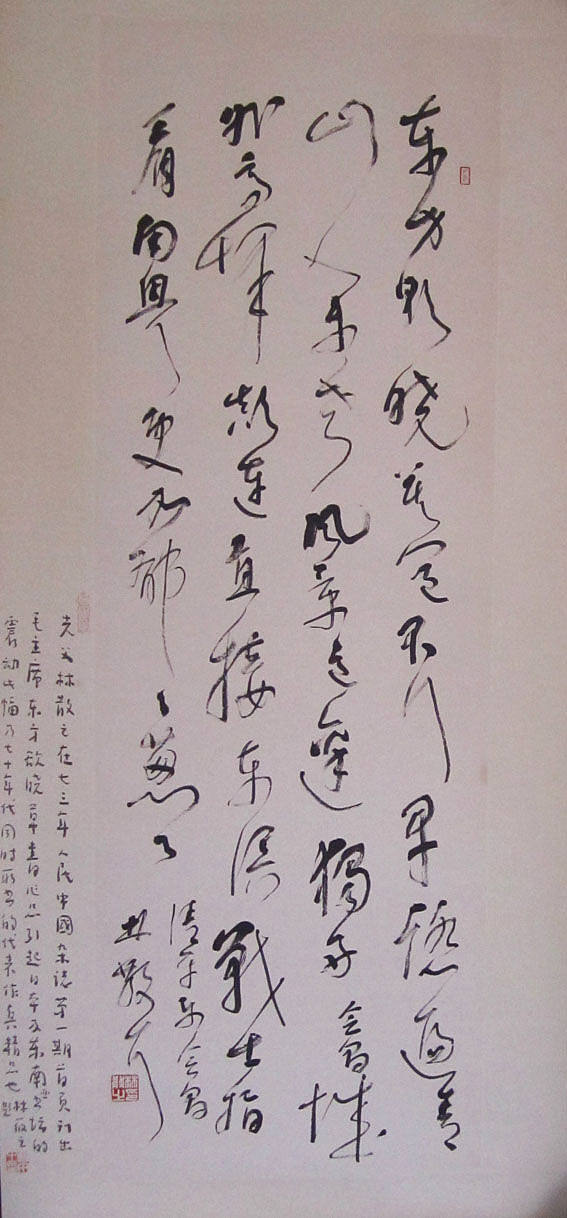 东方欲晓莫道君行早踏遍青
山人未老风景这边独好会昌城
外高峰颠连直接东溟战士指
看南粤更加郁々葱々
清平乐会昌
林散耳
先父林散之在七三年人民中國杂誌第一期首頁刊出
毛主席东方欲晓草書作品引起日本及东南亚書坛的
震动此幅乃七十年代同时所書的代表作真精品也 林筱之題